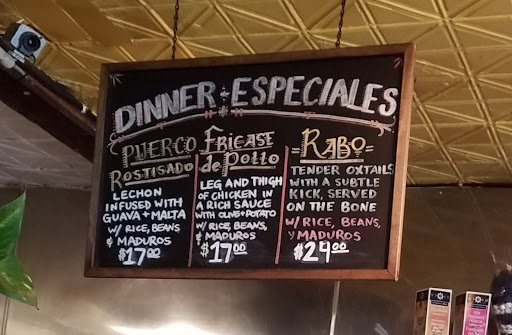 DINNER ESPECIALES
PUERCO
ROSTISADO
LECHON
INFUSED WITH
GUAVA + MALTA
W/ RICE, BEANS
& MADUROS
$17.00
FRICASE
de POLLO
LEG AND THIGH
OF CHICKEN IN
A RICH SAUCE
WITH OLIVE + POTATO
W/ RICE, BEANS,
& MADUROS
$17.00
=RABO=
TENDER OXTAILS
WITH A SUBTLE
KICK, SERVED
ON THE BONE
W/ RICE, BEANS,
Y MADUROS
$29.00